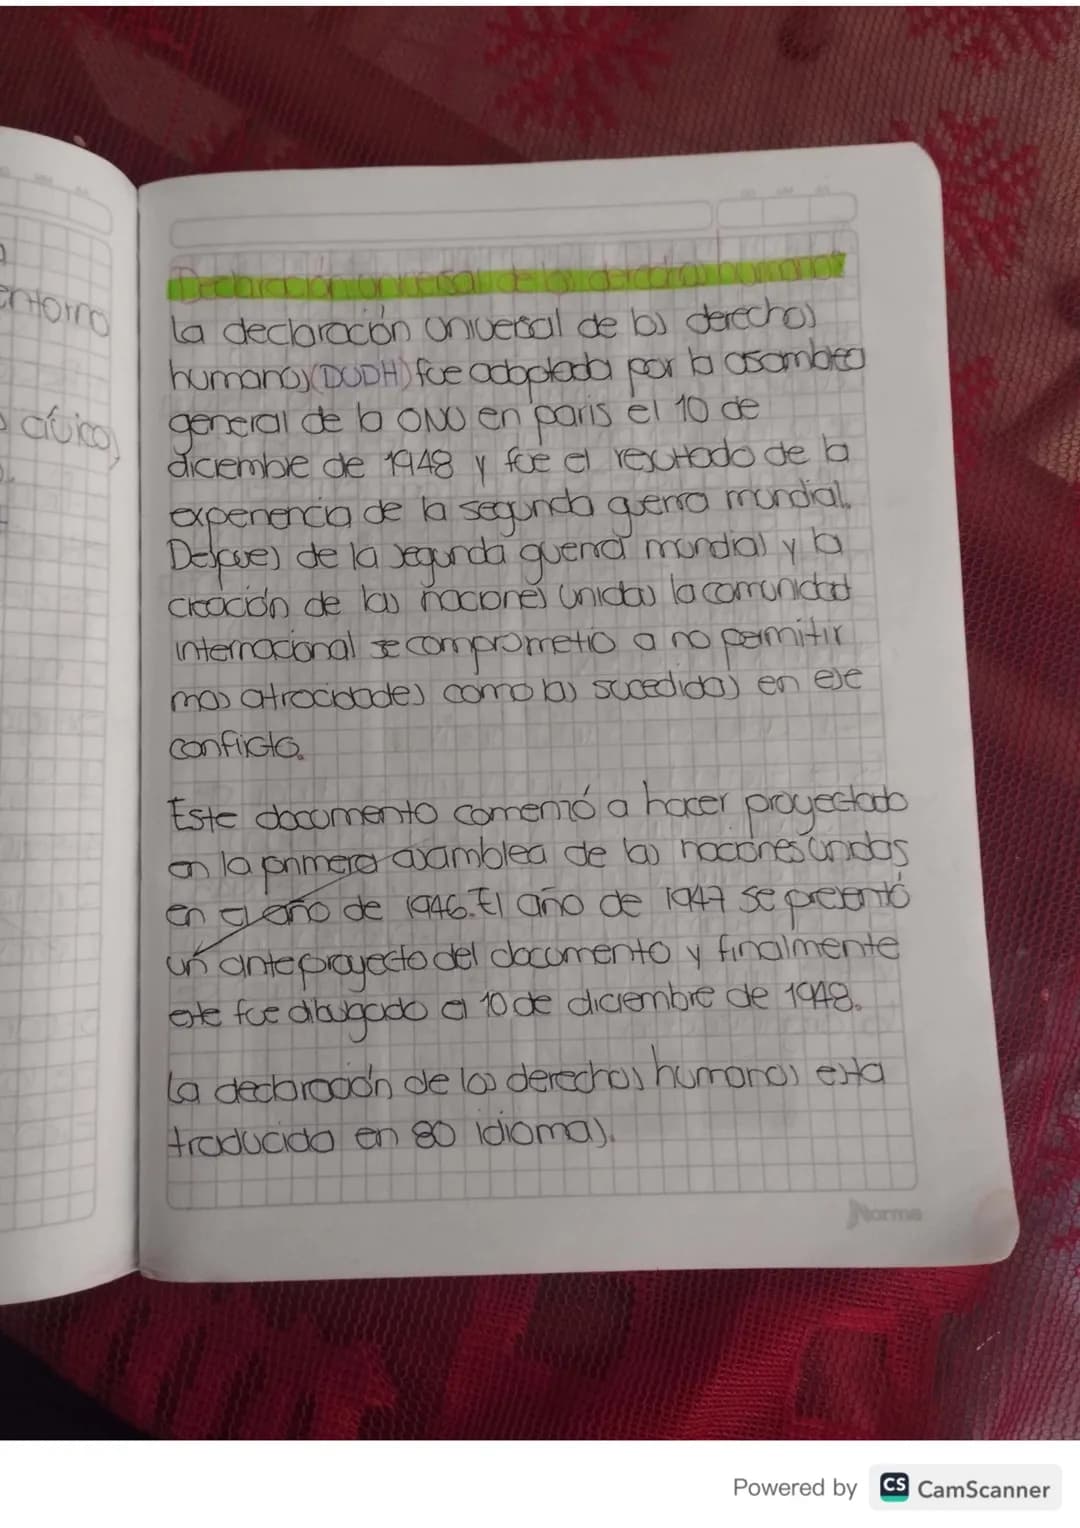 Declaración universal de los derechos humanos
La declaración universal de los derechos
humanos (DUDH) fue adoptada por la asamblea
general de la ONU en paris el 10 de
diciembre de 1948 y fue el resultado de la
experiencia de la segunda guerra mundial.
Despues de la segunda guerra mundial y la
creación de las naciones unidas la comunidad
internacional se comprometio a no permitir
mas atrocidades como las sucedidas en ese
conficto.
Este documento comenzó a hacer proyectado
en la primera asamblea de las naciones unidas
en el año de 1946. El año de 1947 se presentó
un anteproyecto del documento y finalmente
este fue dibulgado el 10 de diciembre de 1948.
La declaración de los derechos humanos esta
traducida en 80 idiomas.
entorno
cívico,
Norma
Powered by CS CamScanner